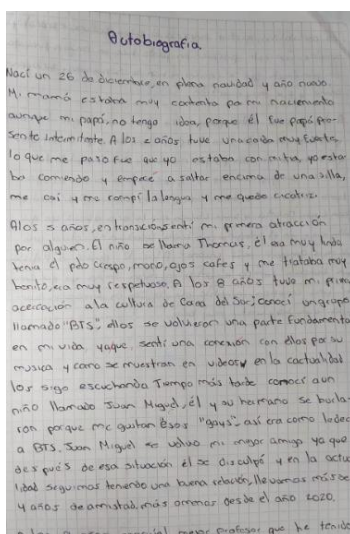 Autobiografía.
Nací un 26 de diciembre, en plena navidad y año nuevo
Mi mamá estaba muy contenta por mi nacimiento
aunque mi papá, no tengo idea, porque él fue papá pre-
sente intermitente. A los 2 años tuve una caida muy fuerte,
lo que me paso fue que yo estaba con mi tia, yo esta-
ba comiendo y empecé a saltar encima de una silla,
me caí y me rompí la lengua y me quedo cicatriz.
A los 5 años, en transición sentí mi primera atracción
por alguien. El niño se llama Thomas, él era muy lindo
tenia el pelo crespo, mono, ojos cafes y me trataba muy
bonito, era muy respetuoso. A los 8 años tuve mi prim
acercación a la cultura de Corea del Sur; conocí un grupo
llamado "BTS" ellos se volvieron una parte fundament
en mi vida ya que, sentí una conexión con ellos por su
musica y como se muestran en videos y en la cactualidad
los sigo escuchando Tiempo más tarde conocí a un
niño llamado Juan Miguel, él y su hermano se burla-
ron porque me gustan esos "gays" así era como le dec
a BTS. Juan Miguel se volvio mi mejor amigo ya que
después de esa situación él se disculpó y en la actu
lidad seguimos teniendo una buena relación, llevamos más de
4 años de amistad, más o menos desde el año 2020.
mejor profesor que he tenido